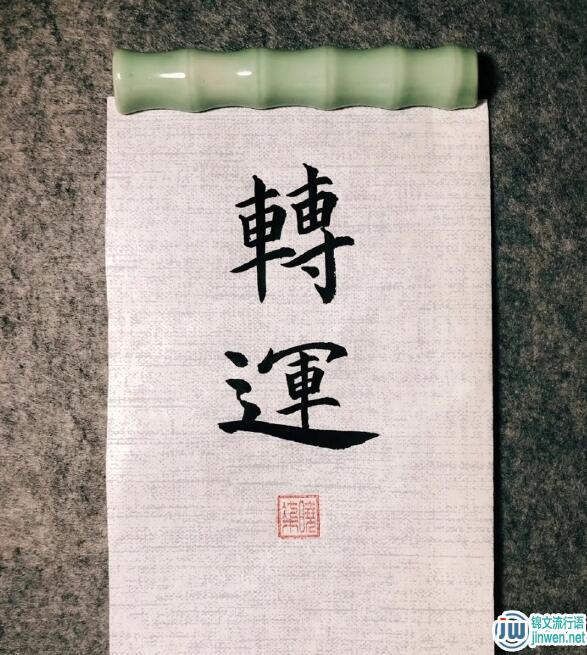 轉
運
锦文流行语
jinwen.net